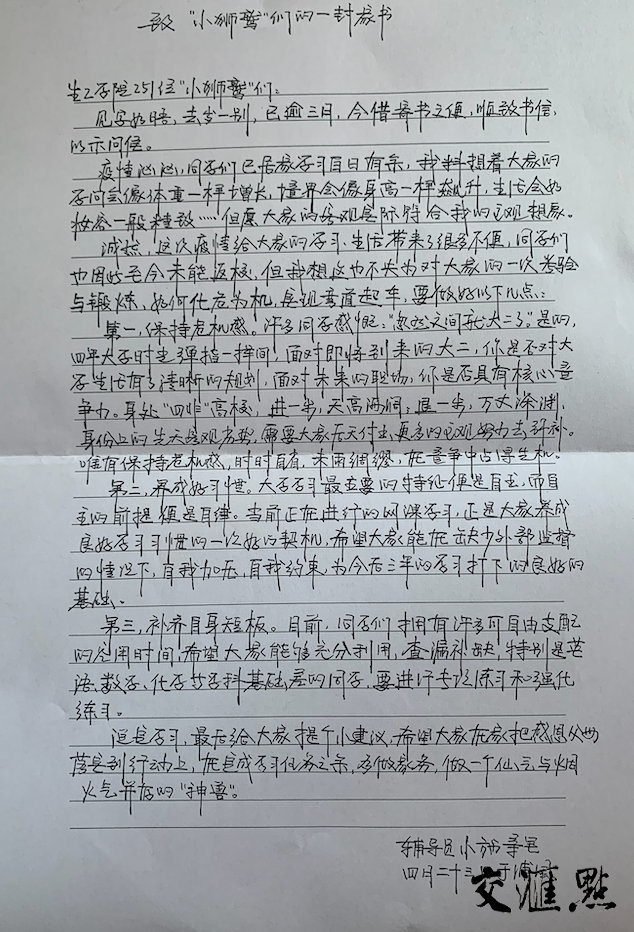 致“小狮鹫”们的一封家书
生工学院251位“小狮鹫”们:
见字如晤,去岁一别,已逾三月,今借寄书之便,顺致书信,
以示问候。
疫情汹汹,同学们已居家学习百日有余,我料想着大家的
学问会像体重一样增长,境界会像身高一样飙升,生活会如
妆容一般精致……但愿大家的客观实际符合我的主观想象。
诚然,这次疫情给大家的学习、生活带来了很多不便,同学们
也因此至今未能返校,但我想这也不失为对大家的一次考验
与锻炼,如何化危为机,实现弯道超车,要做好以下几点:
第一,保持危机感。许多同学感慨:“忽然之间就大二了。”是的,
四年大学时光弹指一挥间,面对即将到来的大二,你是否对大
学生活有了清晰的规划,面对未来的职场,你是否具有核心竞
争力。身处“四非”高校,进一步,天高海阔,退一步,万丈深渊,
身份上的先天客观劣势,需要大家后天付出更多的主观努力去弥补。
唯有保持危机感,时时自省,未雨绸缪,在竞争中占得生机。
第二,养成好习惯。大学学习最主要的特征便是自主,而自
主的前提便是自律。当前正在进行的网课学习,正是大家养成
良好学习习惯的一次好的契机,希望大家能在缺少外部监督
的情况下,自我加压,自我约束,为今后三年的学习打下的良好的
基础。
第三,补齐自身短板。目前,同学们拥有许多可自由支配
的空闲时间,希望大家能够充分利用,查漏补缺,特别是英
语、数学、化学等学科基础差的同学,要进行专项练习和强化
练习。
远离学习,最后给大家提个小建议,希望大家在家把感恩父母
落实到行动上,在完成学习任务之余,多做家务,做一个仙气与烟
火气并存的“神兽”。
辅导员小
四月二十三
交汇點